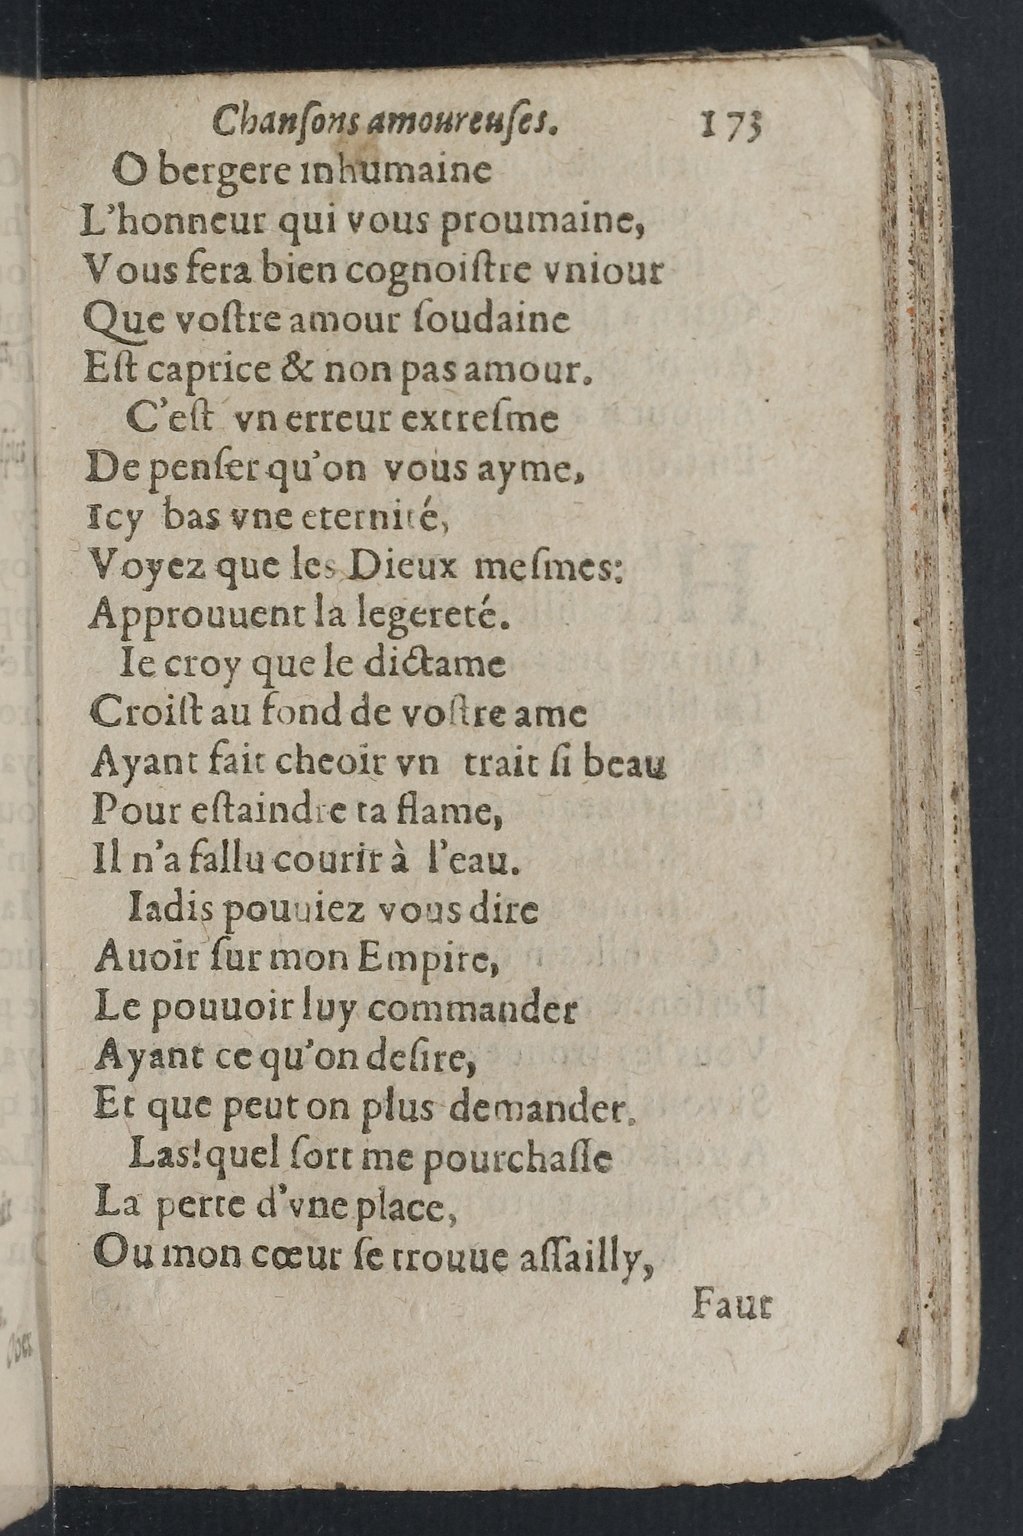 Chanſons amoureuſes. 173
O bergere inhumaine
L'honneur qui vous proumaine,
Vous fera bien cognoiſtre vniour
Que voſtre amour ſoudaine
Eſt caprice & non pas amour.
C'eſt vn erreur extreſme
De penſer qu'on vous ayme,
Icy bas vne eternité,
Voyez que les Dieux meſmes:
Approuuent la legereté.
Ie croy que le dictame
Croiſt au fond de voſtre ame
Ayant fait cheoir vn trait ſi beau
Pour eſtaindre ta flame,
Il n'a fallu courir à l'eau.
Iadis pouuiez vous dire
Auoir ſur mon Empire,
Le pouuoir luy commander
Ayant ce qu'on deſire,
Et que peut on plus demander.
Las! quel ſort me pourchaſſe
La perte d'vne place,
Ou mon cœur ſe trouue aſſailly,
Faut